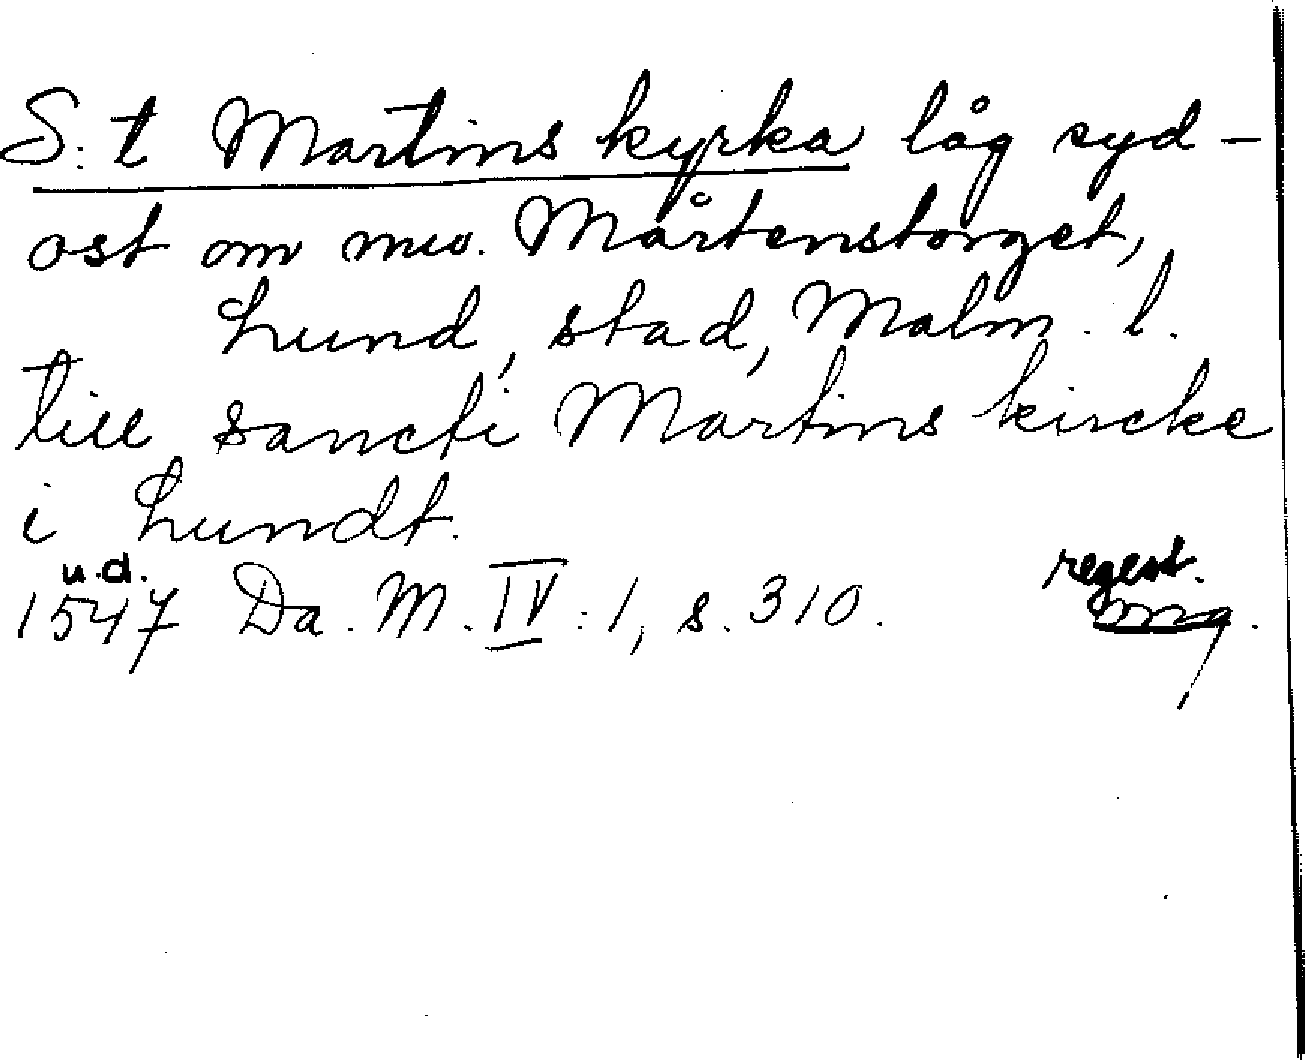 S:t Martins kyrka låg syd-
ost om nuv. Mårtenstorget,
Lund, stad, Malm. l.
till sancti Martins kircke
i Lundt.
u.d.
1547 Da. M. IV:1, s. 310.
regest.